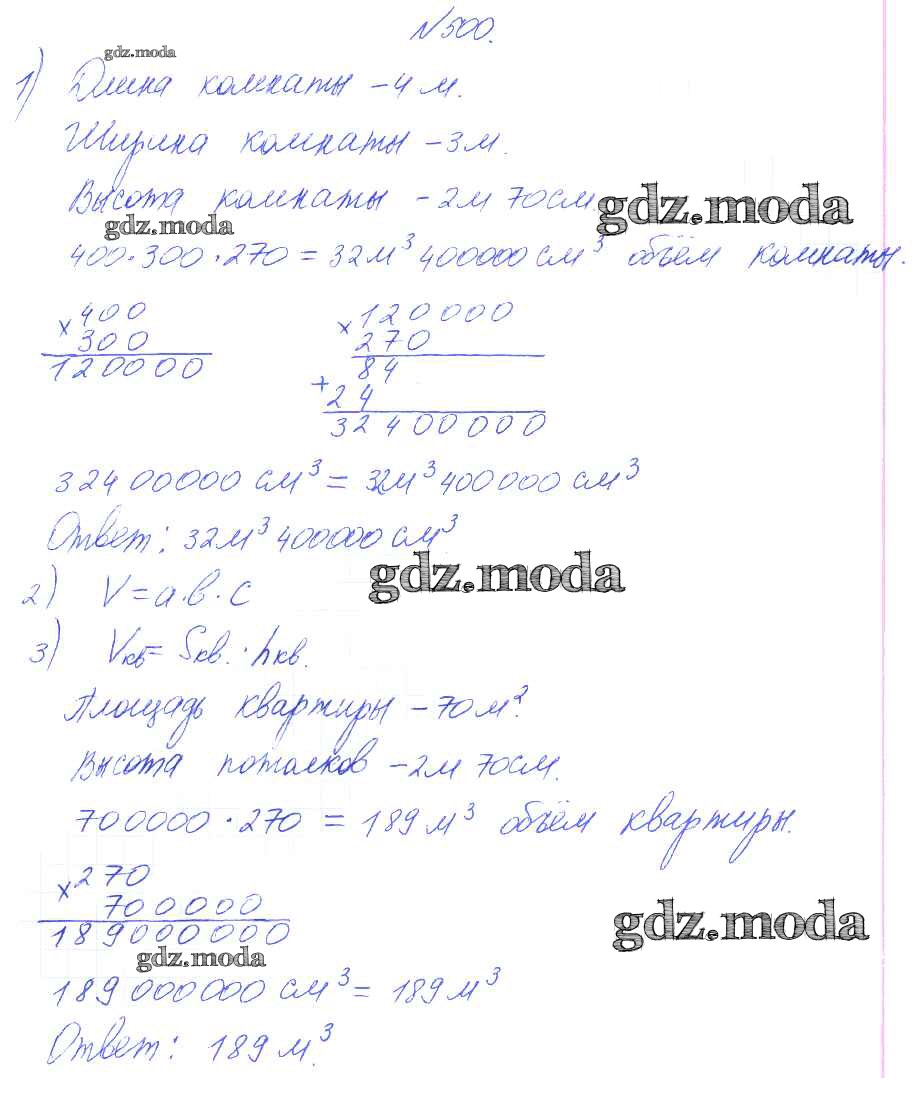 №500.
gdz.moda
1) Длина комнаты – 4 м.
Ширина комнаты – 3 м.
Высота комнаты – 2 м 70 см.
gdz.moda
gdz.moda
400·300·270 = 32 м³ 400000 см³ объём комнаты.
× 400
300
120000
× 120000
270
84
+ 24
32400000
32400000 см³ = 32 м³ 400000 см³
Ответ: 32 м³ 400000 см³
gdz.moda
2) V = a·b·c
3) Vкв = Sкв. · hкв.
Площадь квартиры – 70 м².
Высота потолков – 2 м 70 см.
700000 · 270 = 189 м³ объём квартиры.
× 270
700000
189000000
gdz.moda
gdz.moda
189000000 см³ = 189 м³
Ответ: 189 м³.